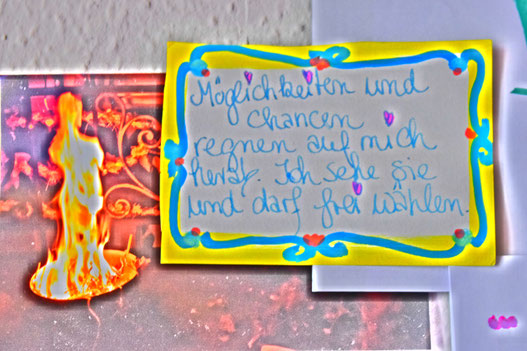 Möglichkeiten und
Chancen
regnen auf mich
herab. Ich sehe sie
und darf frei wählen.